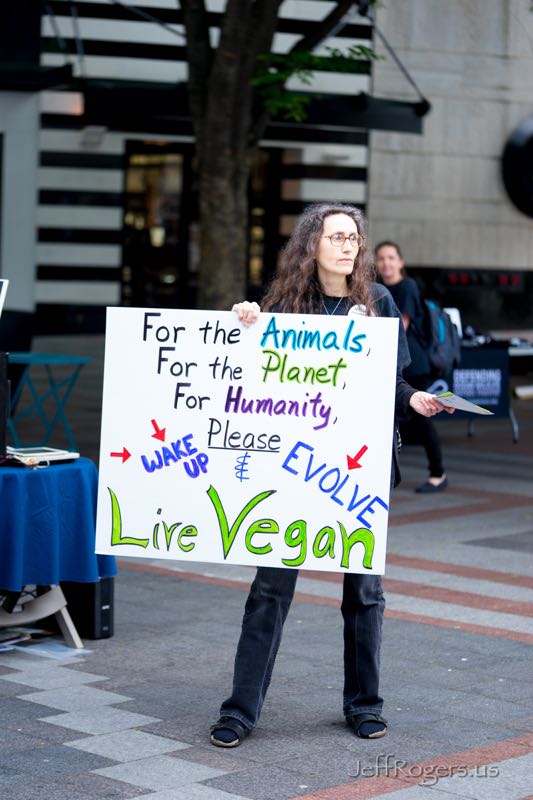 For the Animals,
For the Planet,
For Humanity,
Please
WAKE UP
&
EVOLVE
Live Vegan
DEFENDING
JeffRogers.us